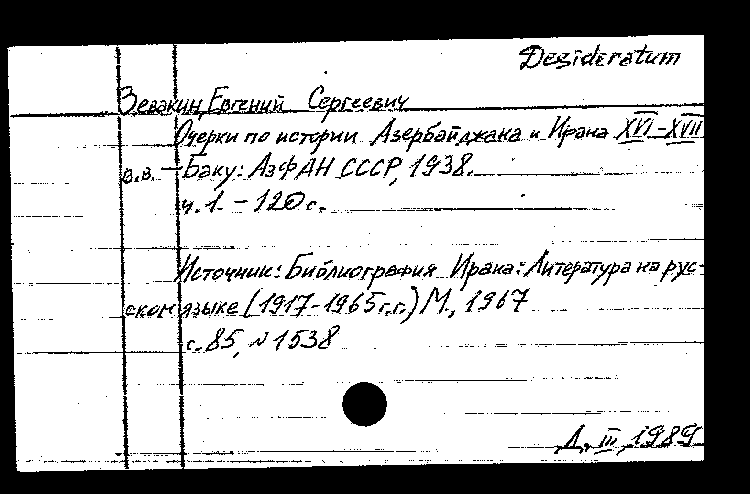 Desideratum
Зевакин, Евгений Сергеевич
Очерки по истории Азербайджана и Ирана XVI-XVII
в.в. — Баку: АзФАН СССР, 1938.
ч.1. - 120 с.
Источник: Библиография Ирана: Литература на рус-
ском языке (1917-1965 г.г.) М., 1967
с. 85, № 1538
Д., III, 1989